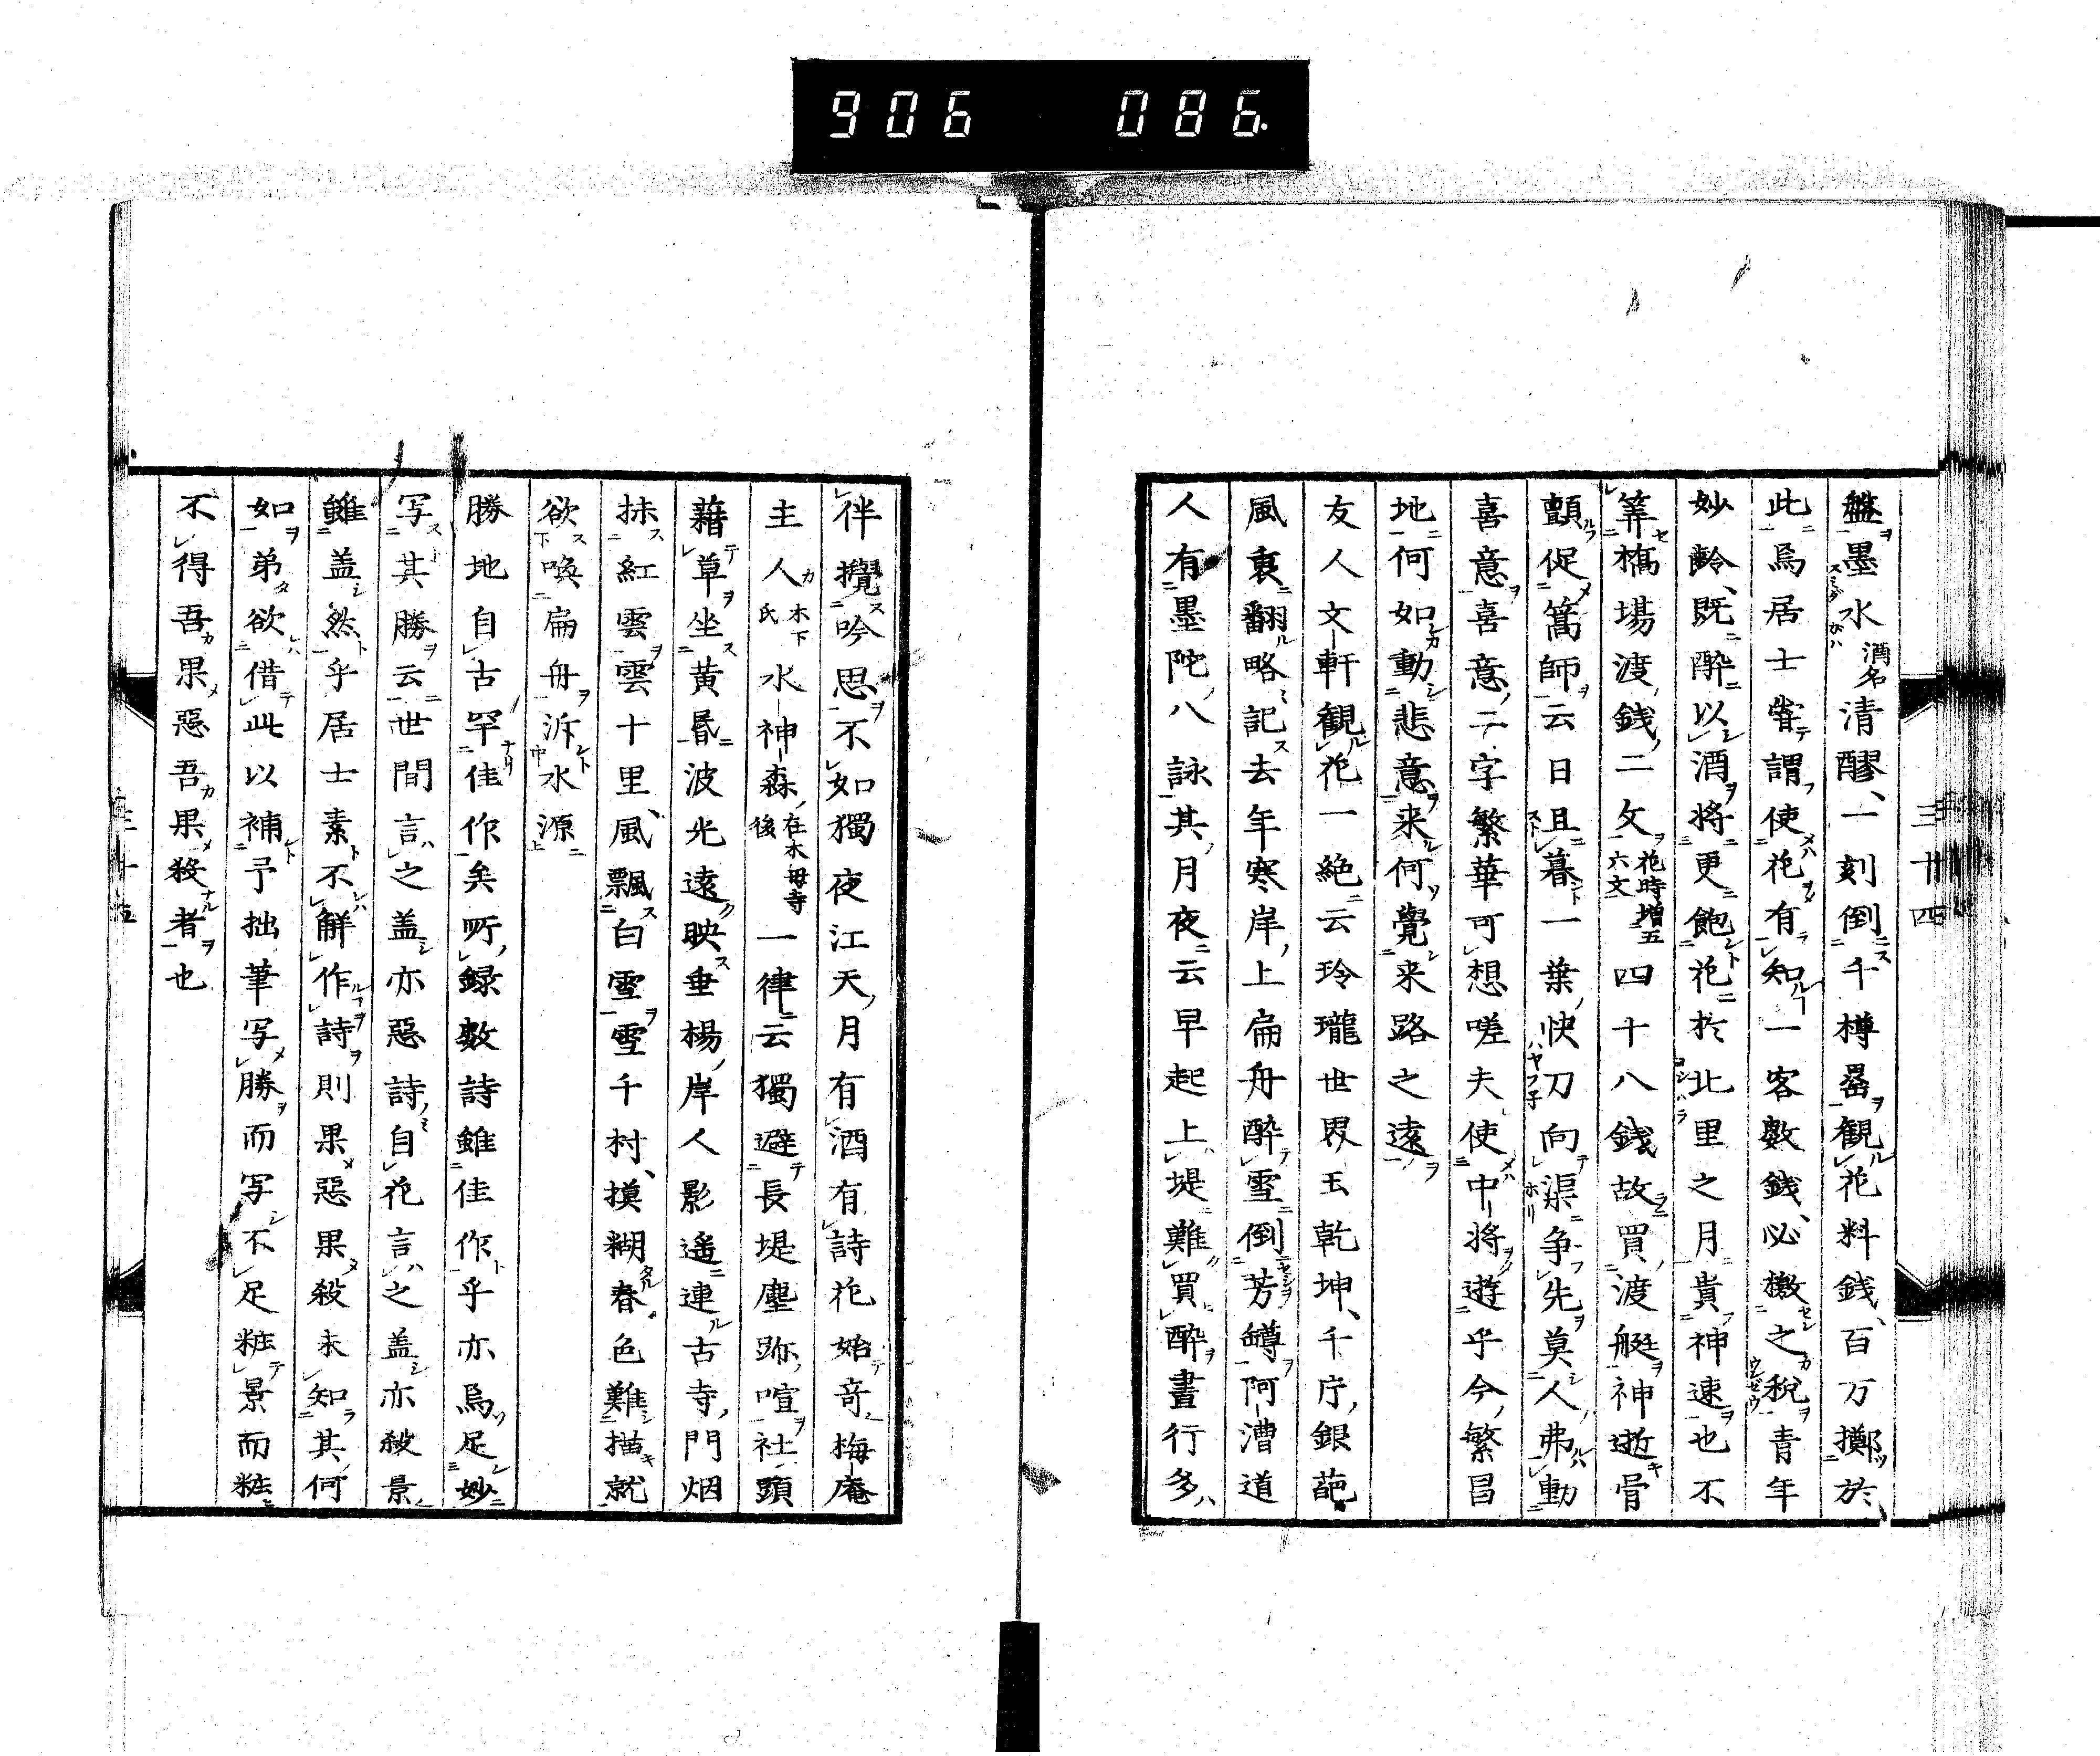 906 086.
三十四
盤墨水酒名清醪、一刻倒千樽罍觀花料錢、百万擲於
此烏居士嘗謂使花有知一客數錢、必檄之稅青年
妙齡、既酔以酒將更飽花於北里之月貴神速也不
筭橋場渡錢二文花時増五六文四十八錢故買渡艇神逝骨
顫促篙師云日且暮一葉快刀向渠争先莫人弗動
喜意喜意二字繁華可想嗟夫使中將遊乎今繁昌
地何如動悲意来何覺来路之遠
友人文軒觀花一絶云玲瓏世界玉乾坤、千片銀葩
風裏翻略記去年寒岸上扁舟酔雪倒芳罇阿漕道
人有墨陀八詠其月夜云早起上堤難買酔晝行多
伴攪吟思不如獨夜江天月有酒有詩花始竒梅庵
主人木下氏水神森在木母寺後一律云獨避長堤塵跡喧社頭
藉草坐黄昏波光遠映垂楊岸人影遥連古寺門烟
抹紅雲雲十里、風飄白雪雪千村、摸糊春色難描就
欲喚扁舟泝水源
勝地自古罕佳作矣所録數詩雖佳作乎亦烏足妙
写其勝云世間言之盖亦惡詩自花言之盖亦殺景
雖盖然乎居士素不解作詩則果惡果殺未知其何
如弟欲借此以補予拙筆写勝而写不足粧景而粧
不得吾果惡吾果殺者也